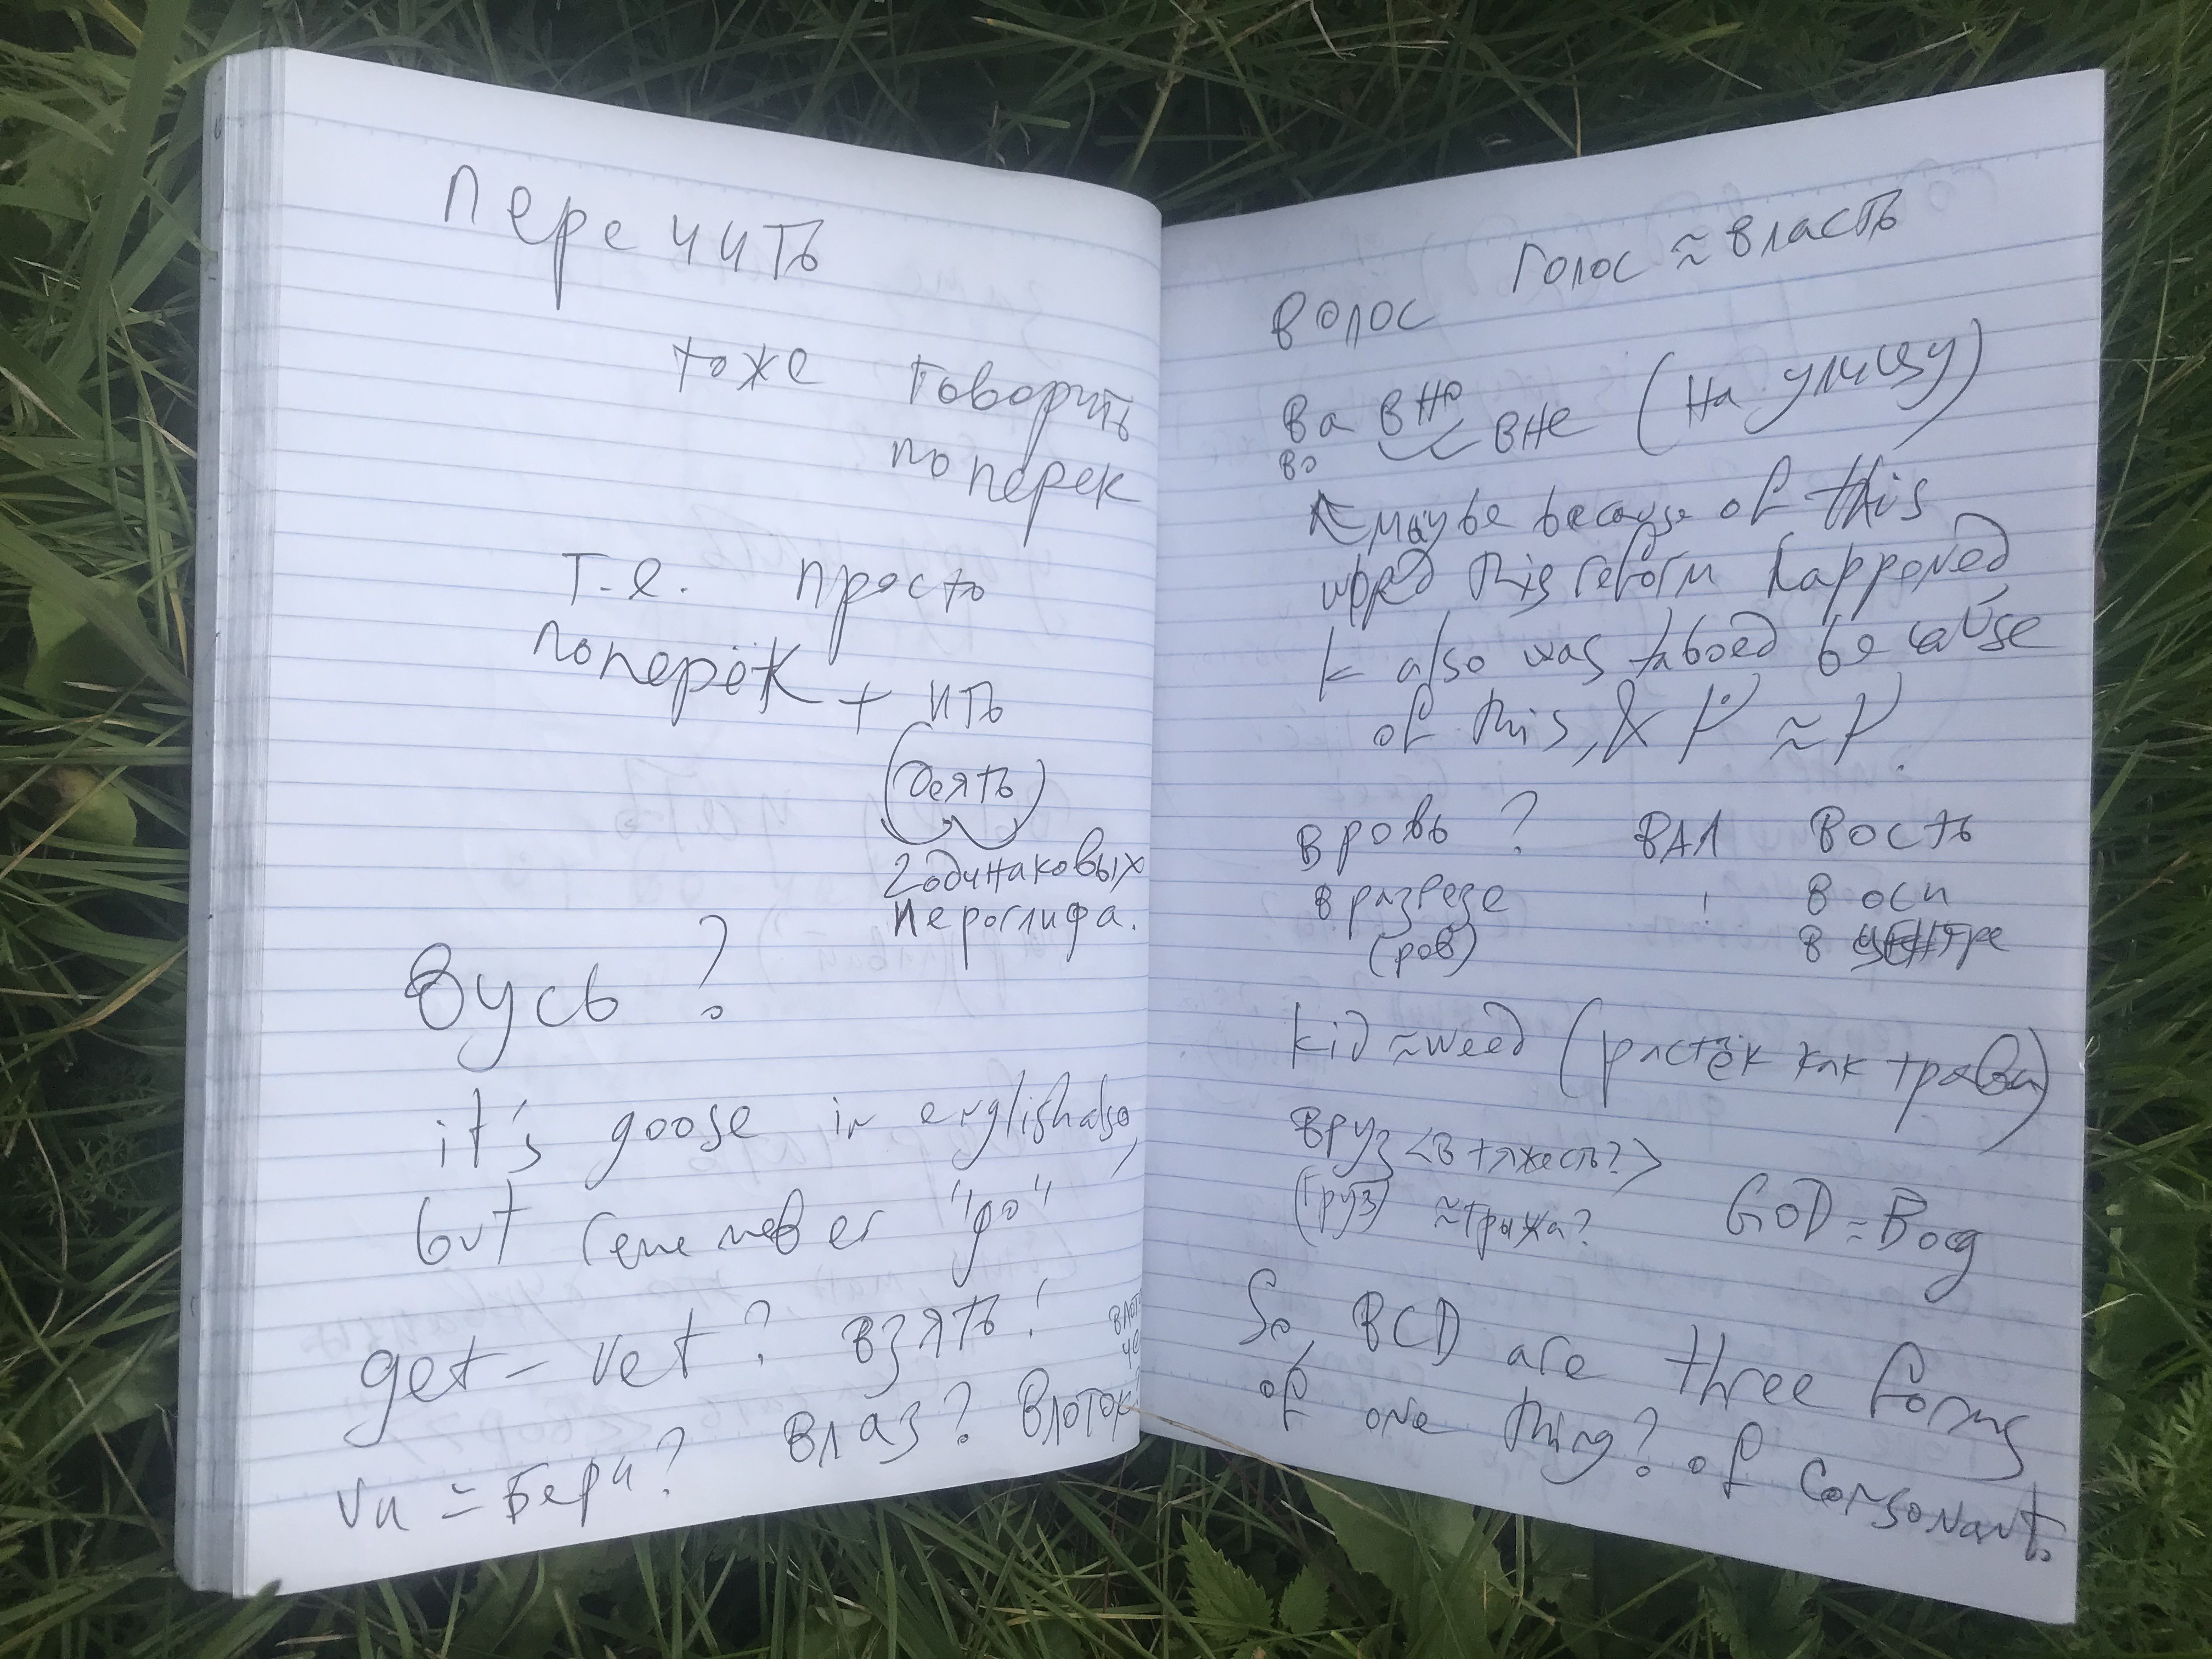 перечить
тоже говорить
поперек
т.е. просто
поперёк + ить
(Деять)
2 одинаковых
иероглифа.
Вусь?
it's goose in english also,
but (ene weber "go",
get - vet? взять!
на = бери? влаз? ВРОТОК
волос голос ≈ власть
Ва вно вне (на улицу)
во
maybe because of this
word this reform happened
k also was taboed because
of this, & p ≈ p.
вровь? вал вость
в разрезе ! в оси
(ров) в центре
kid ≈ weed (росток как травы)
Вруз <в + тяжест?>
(груз) ≈ грыжа? GOD = Bog
So BCD are three forms
of one thing? of consonant.